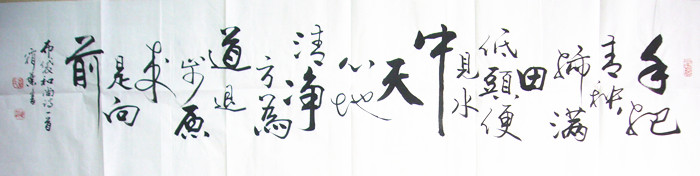 手把
青秧
插满
田
低頭便
見水
中
天
心地
清净
方為
道退
步原
来
是向
前
布袋和尚诗一首